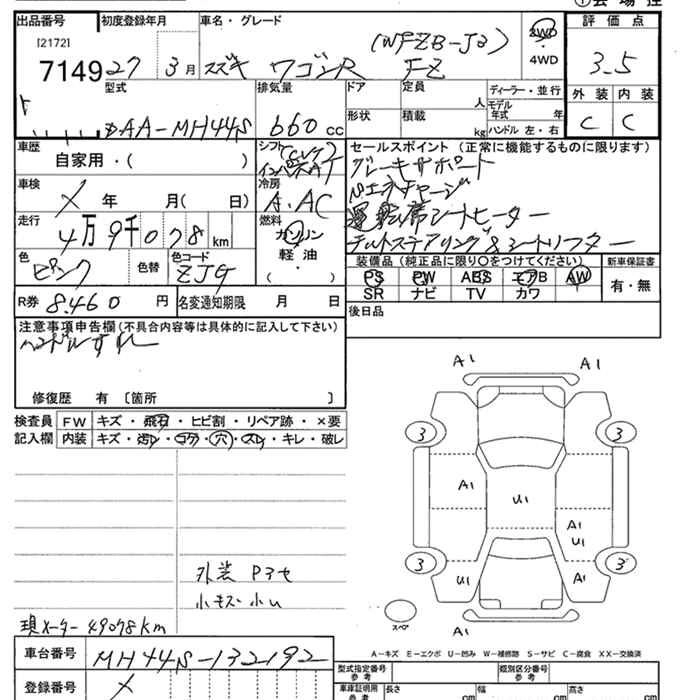 ①会場控
出品番号 初度登録年月 車名・グレード 評価点
[2172]
7149 27 3月 スズキ ワゴンR FZ (WFZB-J3) 2WD・4WD 3.5
型式 排気量 ドア 定員 人 ディーラー・並行 外装 内装
DAA-MH44S 660cc 形状 積載 kg モデル年式 年 ハンドル 左・右 C C
車歴 シフト セールスポイント(正常に機能するものに限ります)
自家用・( ) インパネAT ブレーキサポート
車検 冷房 エネチャージ
X 年 月( 日) A.AC 運転席シートヒーター
走行 燃料 チルトステアリング&シートリフター
4万9千078km ガソリン・軽油・( )
色 色替 色コード 装備品(純正品に限り〇をつけてください) 新車保証書
ピンク ZJG PS PW ABS エアB AW 有・無
SR ナビ TV カワ
R券 8.460円 名変通知期限 月 日 後日品
注意事項申告欄(不具合内容等は具体的に記入して下さい)
ハンドルすれ
修復歴 有 〔箇所 〕
検査員記入欄 FW キズ・飛石・ヒビ割・リペア跡・×要
内装 キズ・汚レ・コゲ・穴・スレ・キレ・破レ
A1 A1
3 3
A1 U1 A1
U1
3 3
U1 A1
スペア A1
外装 Pキセ
小キズ小U
現メーター 49078km
A-キズ E-エクボ U-凹み W-補修跡 S-サビ C-腐食 XX-交換済
車台番号 MH44S-132192
型式指定番号 参考 類別区分番号 参考
登録番号 X
車庫証明用 参考 長さ cm 幅 cm 高さ cm